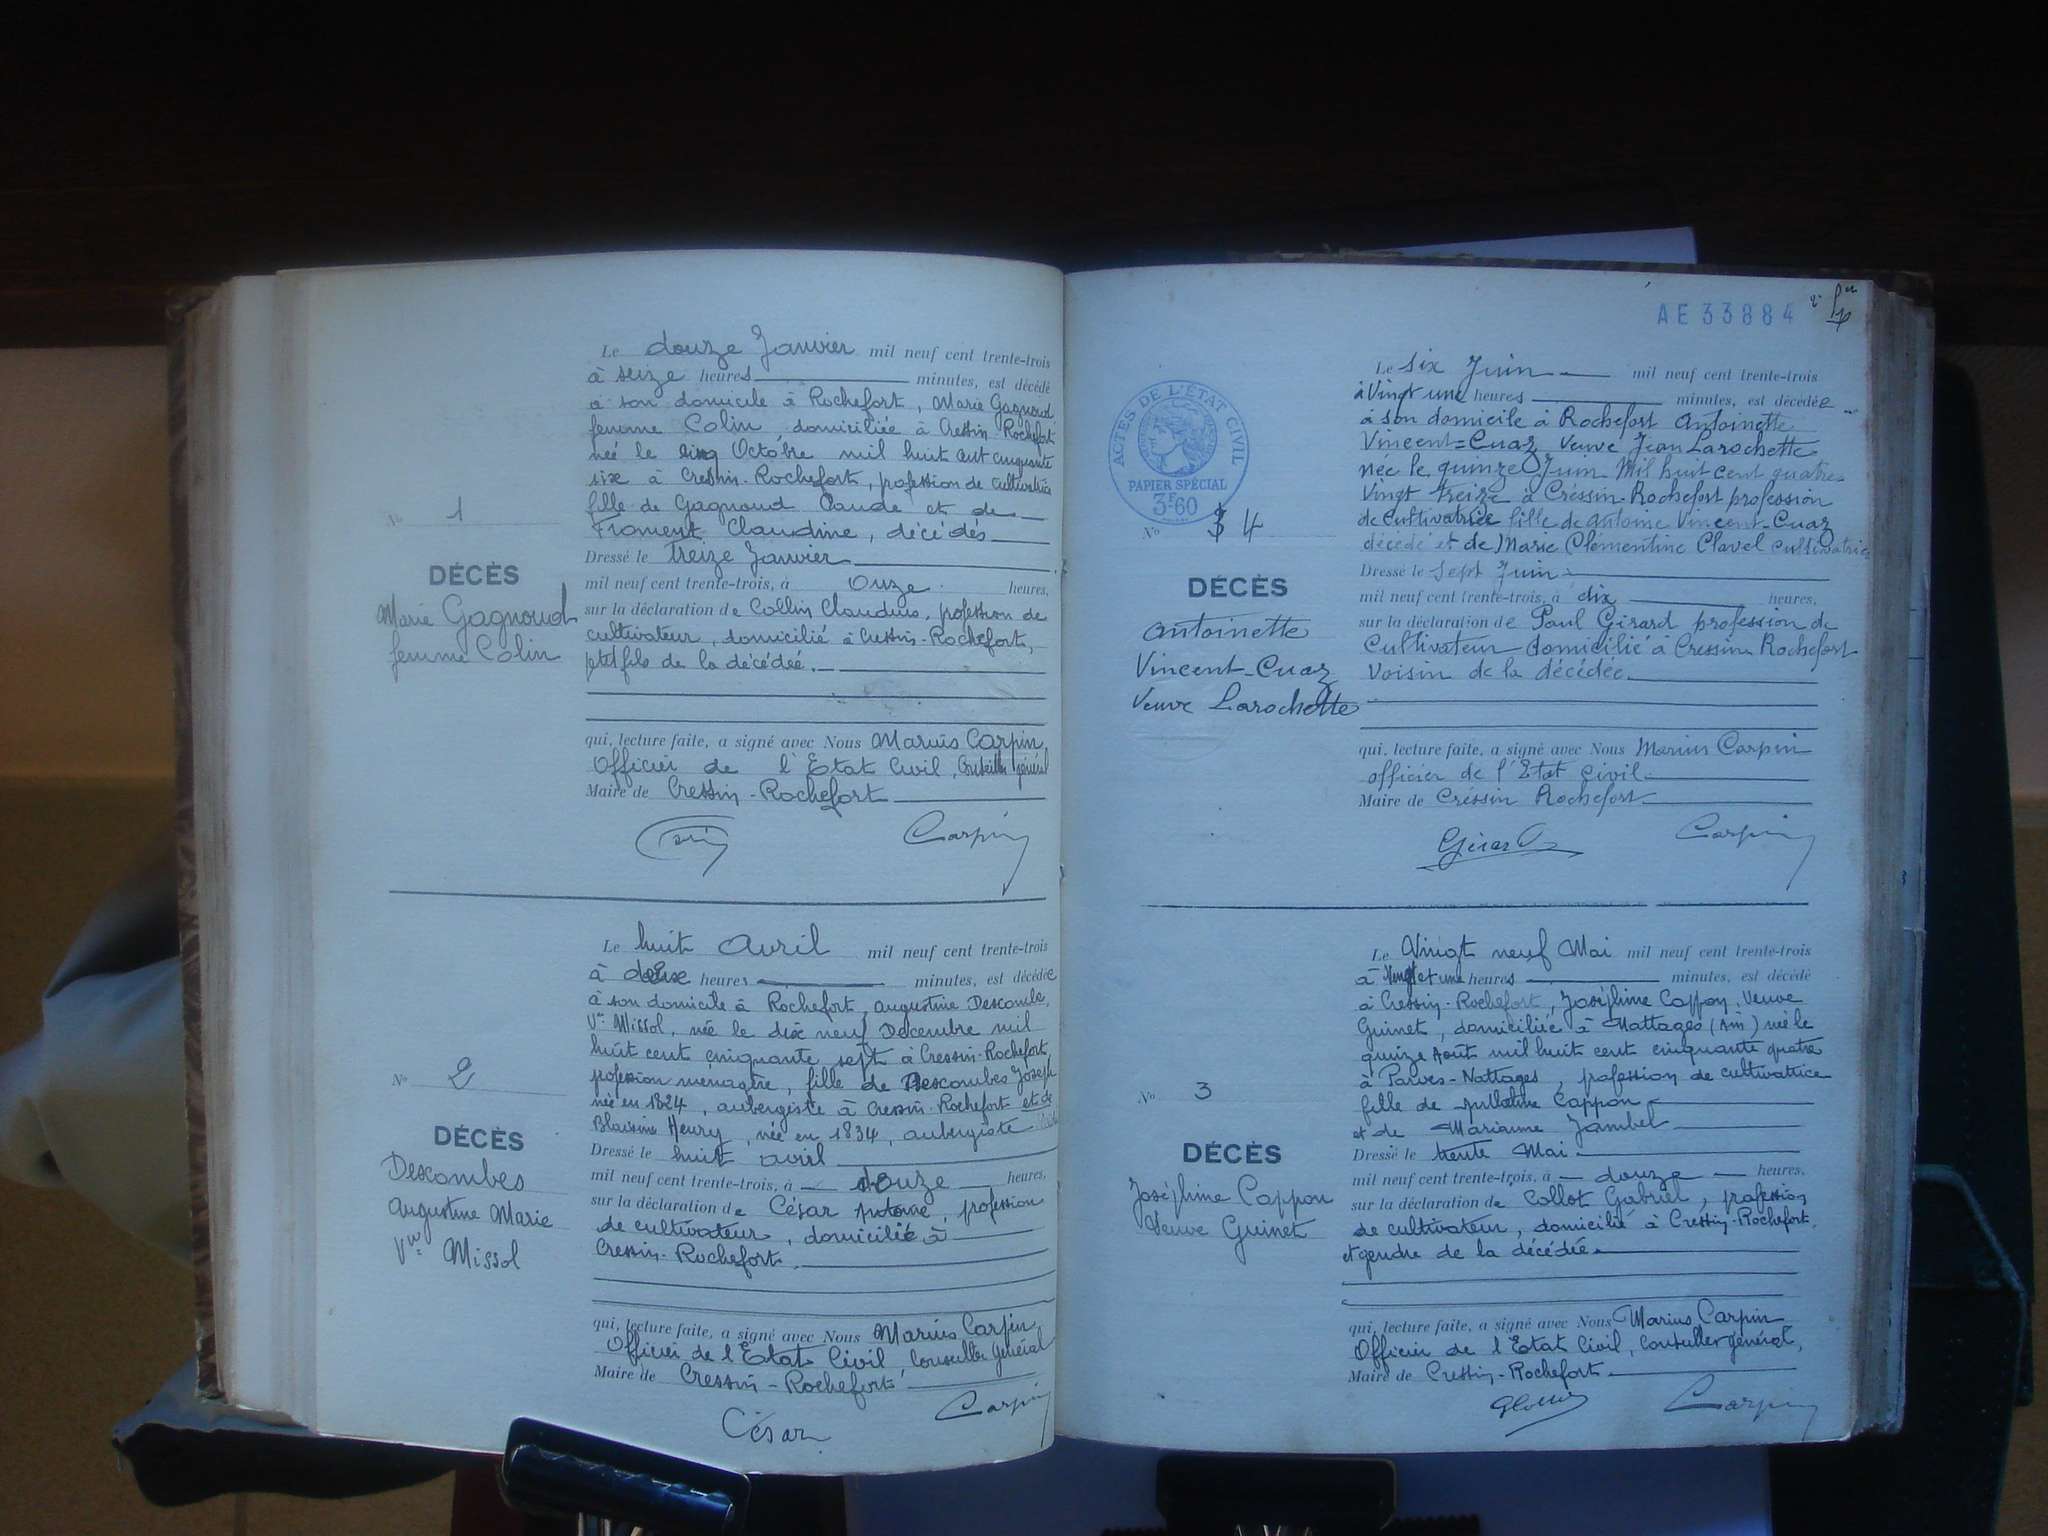 Le douze Janvier mil neuf cent trente-trois
à seize heures minutes, est décédé
à son domicile à Rochefort, Marie Gagnoud
femme Colin domiciliée à Cressin-Rochefort
née le cinq Octobre mil huit cent cinquante
six à Cressin-Rochefort, profession de cultivatrice
fille de Gagnoud Claude et de
Froment Claudine, décédés
Nº 1
Dressé le treize Janvier
DÉCÈS
mil neuf cent trente-trois, à onze heures,
Marie Gagnoud
femme Colin
sur la déclaration de Collin Claudius, profession de
cultivateur, domicilié à Cressin-Rochefort,
petit fils de la décédée.
qui, lecture faite, a signé avec Nous Marius Carpin
Officier de l'Etat Civil, Conseiller général
Maire de Cressin-Rochefort
Carpin
Le huit avril mil neuf cent trente-trois
à deux heures minutes, est décédée
à son domicile à Rochefort, Augustine Descombe,
Vve Missol, née le dix neuf Décembre mil
huit cent cinquante sept à Cressin-Rochefort
profession ménagère, fille de Descombes Joseph
née en 1824, aubergiste à Cressin-Rochefort et de
Blaisine Henry, née en 1834, aubergiste
Nº 2
DÉCÈS
Descombes
Augustine Marie
Vve Missol
Dressé le huit avril
mil neuf cent trente-trois, à douze heures,
sur la déclaration de César Antoine, profession
de cultivateur, domicilié à
Cressin-Rochefort.
qui, lecture faite, a signé avec Nous Marius Carpin
Officier de l'Etat Civil, Conseiller Général
Maire de Cressin-Rochefort
César Carpin
AE 33884
ACTES DE L'ÉTAT CIVIL
PAPIER SPÉCIAL
3F60
Le six Juin mil neuf cent trente-trois
à Vingt une heures minutes, est décédée
à son domicile à Rochefort Antoinette
Vincent=Cuaz Veuve Jean Larochette
née le quinze Juin Mil huit cent quatre
Vingt treize à Créssin-Rochefort profession
de Cultivatrice fille de Antoine Vincent-Cuaz
décédé et de Marie Clémentine Clavel cultivatrice
Nº 3 4
DÉCÈS
Antoinette
Vincent-Cuaz
Veuve Larochette
Dressé le sept Juin
mil neuf cent trente-trois, à dix heures,
sur la déclaration de Paul Girard profession de
Cultivateur domicilié à Cressin Rochefort
Voisin de la décédée.
qui, lecture faite, a signé avec Nous Marius Carpin
officier de l'Etat civil
Maire de Créssin Rochefort
Girard Carpin
Le Vingt neuf Mai mil neuf cent trente-trois
à vingt et une heures minutes, est décédé
à Cressin-Rochefort, Joséphine Cappon, Veuve
Guinet, domiciliée à Nattages (Ain) née le
quinze Août mil huit cent cinquante quatre
à Parves-Nattages, profession de cultivattrice
fille de Cappon
et de Marianne Jambel
Nº 3
DÉCÈS
Joséphine Cappon
Veuve Guinet
Dressé le trente Mai
mil neuf cent trente-trois, à douze heures,
sur la déclaration de Collot Gabriel, profession
de cultivateur, domicilié à Cressin-Rochefort,
et gendre de la décédée
qui, lecture faite, a signé avec Nous Marius Carpin
Officier de l'Etat Civil, Conseiller général,
Maire de Cressin-Rochefort
Carpin